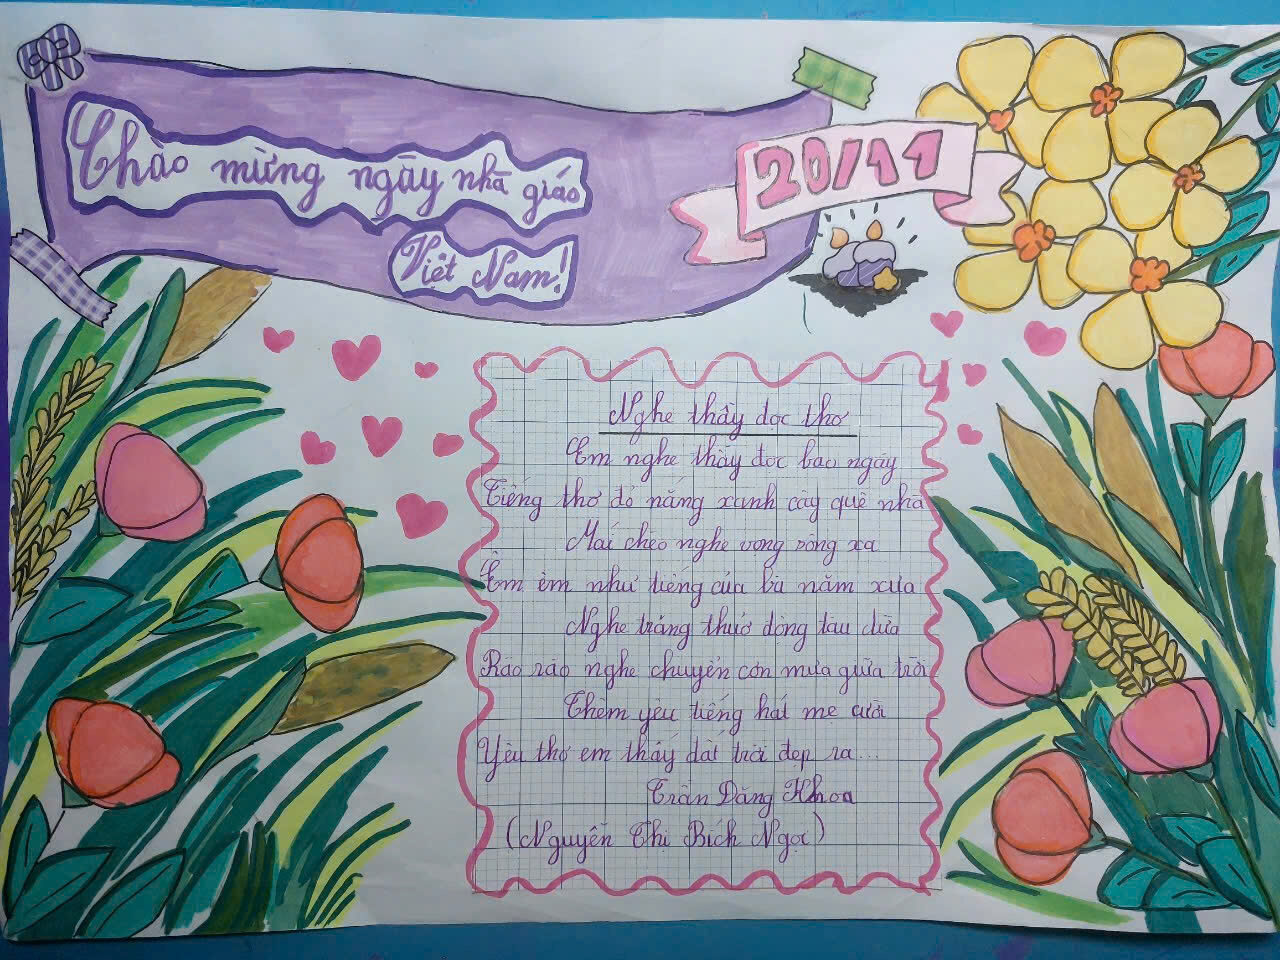 Chào mừng ngày nhà giáo
Việt Nam!
20/11
Nghe thầy đọc thơ
Em nghe thầy đọc bao ngày
Tiếng thơ đỏ nắng xanh cây quê nhà
Mái chèo nghe vọng sông xa
Êm êm như tiếng của bà năm xưa
Nghe trăng thuở động tàu dừa
Rào rào nghe chuyển cơn mưa giữa trời
Thêm yêu tiếng hát mẹ cười
Yêu thơ em thấy đất trời đẹp ra...
Trần Đăng Khoa
(Nguyễn Thị Bích Ngọc)